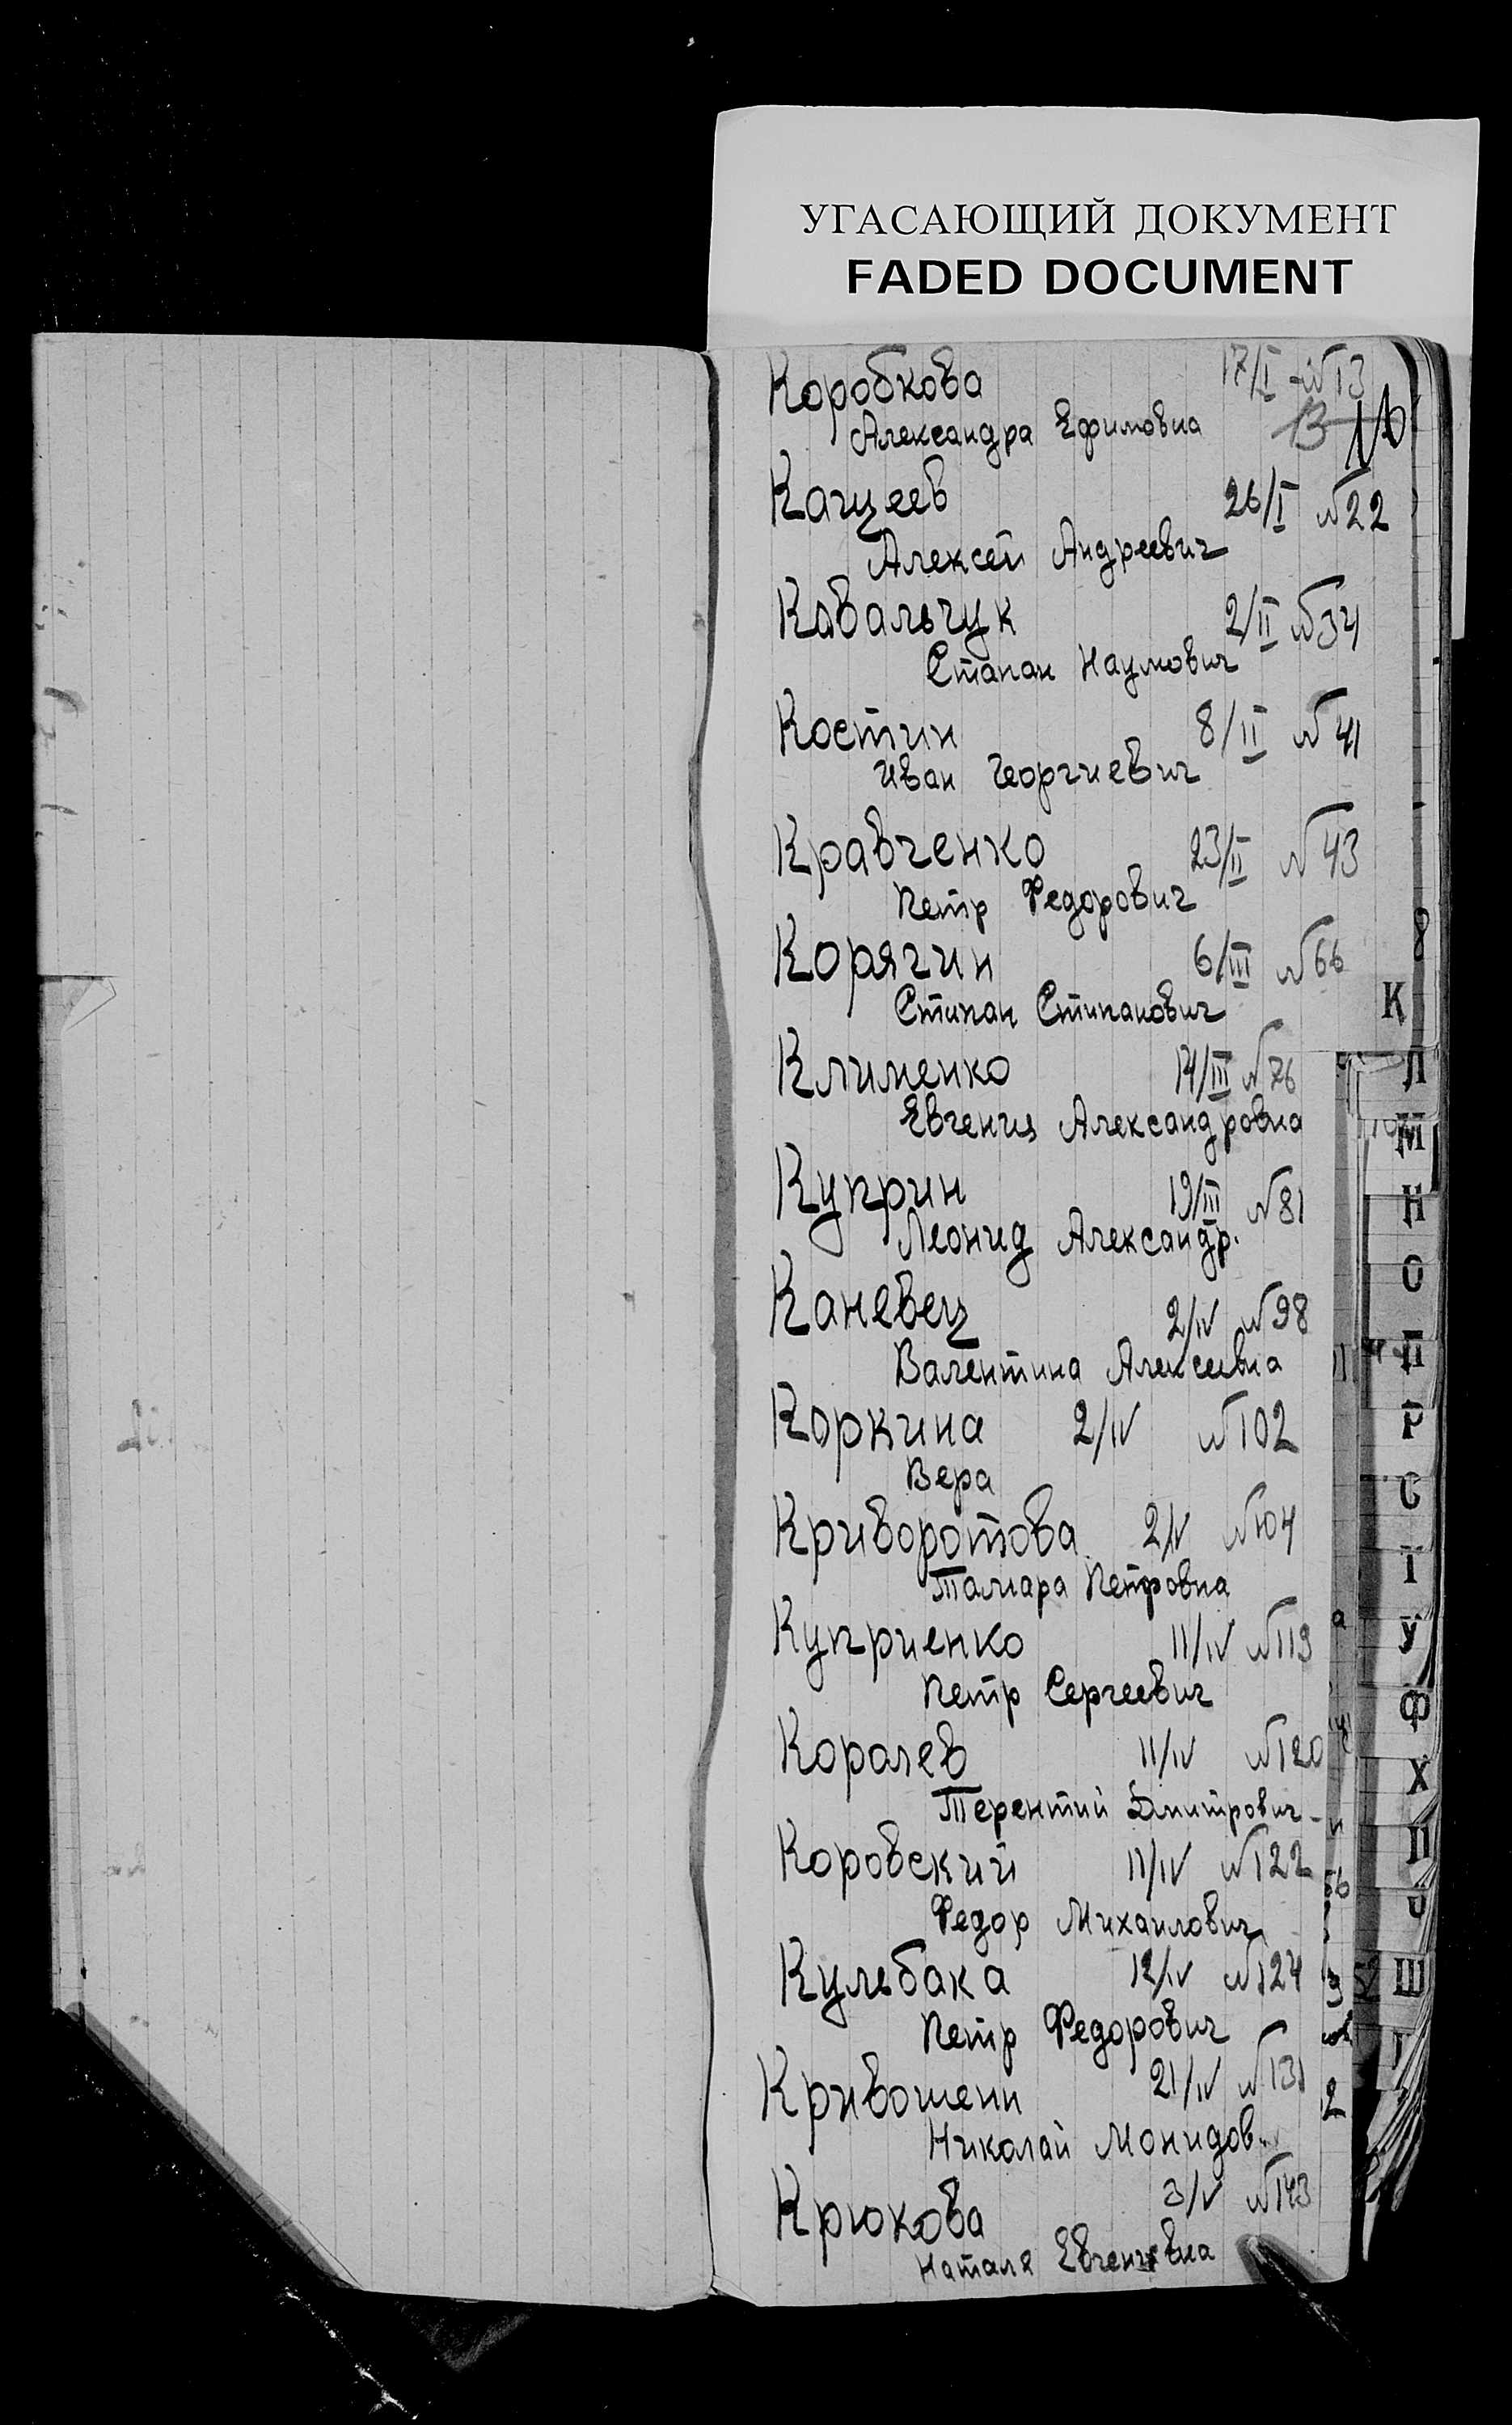 УГАСАЮЩИЙ ДОКУМЕНТ
FADED DOCUMENT
Коробкова 17/I - №13
Александра Ефимовна 13
Кащеев 26/I №22
Алексей Андреевич
Кавальчук 2/II №34
Стапан Наумович
Костин 8/II №41
Иван Георгиевич
Кравченко 23/II №43
Петр Федорович
Корягин 6/III №66
Стипан Стипанович
Клименко 14/III №76
Евгения Александровна
Куприн 19/III №81
Леонид Александр.
Каневец 2/IV №98
Валентина Алексеевна
Коркина 2/IV №102
Вера
Криворотова 2/IV №104
Тамара Петровна
Куприенко 11/IV №119
Петр Сергеевич
Королев 11/IV №120
Терентий Дмитрович
Коровский 11/IV №122
Федор Михаилович
Кульбака 12/IV №124
Петр Федорович
Кривошеин 21/IV №131
Николай
Крюкова 3/V №143
Наталя Евгеневна
К
Л
М
Н
О
П
Р
С
Т
У
Ф
Х
Ц
Ш